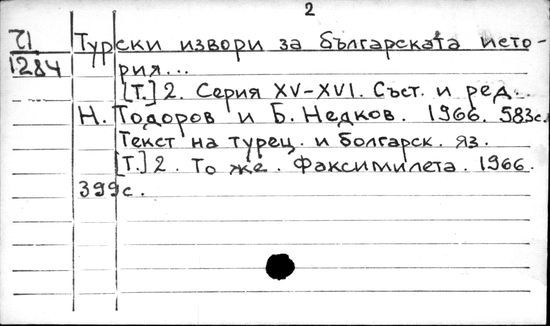 2
П
1284
Турски извори за българската исто-
рия...
[Т.] 2. Серия XV-XVI. Съст. и ред.
Н. Тодоров и Б. Недков. 1966. 583с.
Текст на турец. и болгарск. яз.
[Т.] 2. То же. Факсимилета. 1966.
399с.